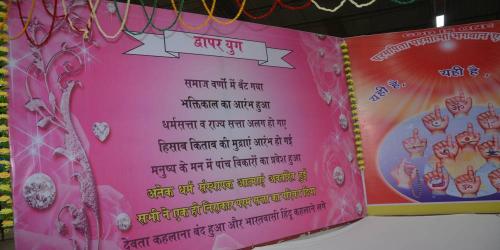 द्वापर युग
समाज वर्णों में बँट गया
भक्तिकाल का आरंभ हुआ
धर्मसत्ता व राज्य सत्ता अलग हो गए
हिसाब किताब की मुद्राएं आरंभ हो गई
मनुष्य के मन में पांच विकारों का प्रवेश हुआ
अनेक धर्म संस्थापक आत्माएं अवतरित हुई
सभी ने एक ही निराकार परम सत्ता का परिचय दिया
देवता कहलाना बंद हुआ और भारतवासी हिंदु कहलाने लगे
परमपिता परमात्मा भगवान
यही है, यही है,